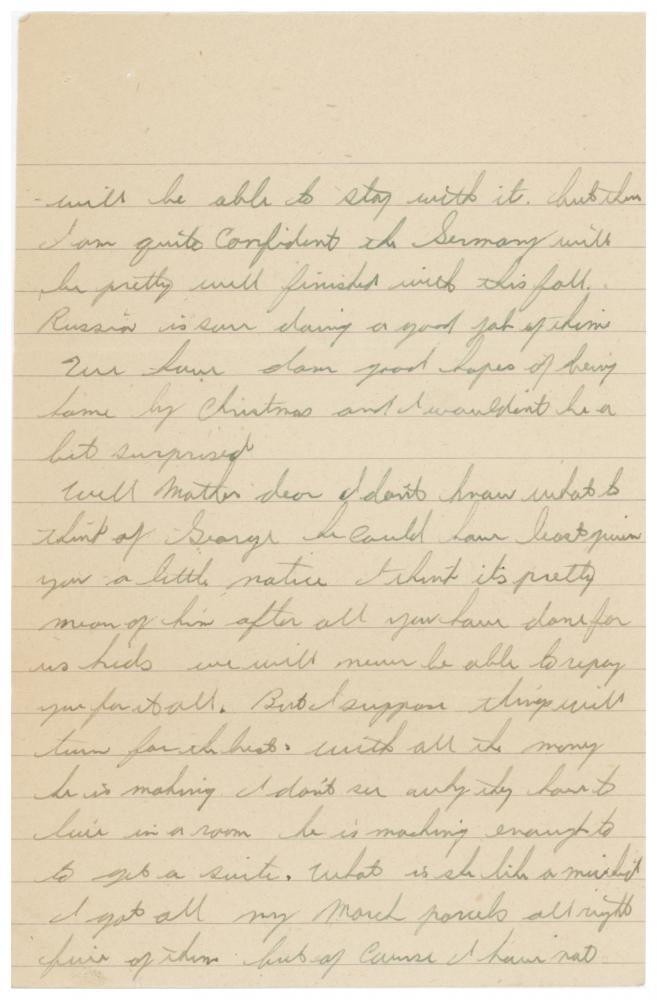 will be able to stay with it. but then
I am quite Confident the Germany will
be pretty well finished with this fall.
Russia is sure doing a good job of them
We have dam good hopes of being
home by Christmas and I wouldn't be a
bit surprised
Well Mother dear I don't know what to
think of George he could have least given
you a little notice I think it's pretty
mean of him after all you have done for
us kids we will never be able to repay
you for it all. But I suppose things will
turn for the best. with all the money
he is making I don't see why they have to
live in a room he is making enough to
to get a suite. What is she like a
I got all my March parcels all right
five of them but of course I have not